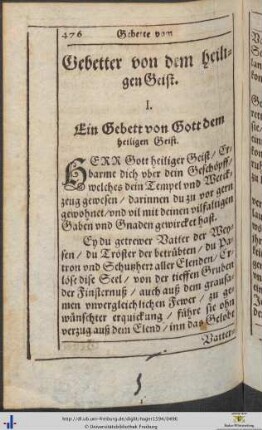 476 Gebette vom
Gebetter von dem heili-
gen Geist.
I.
Ein Gebett von Gott dem
heiligen Geist.
HERR Gott heiliger Geist / Er-
barme dich vber dein Geschöpff /
welches dein Tempel vnd Werck-
zeug gewesen / darinnen du zu vor gern
gewohnet / vnd vil mit deinen vilfaltigen
Gaben vnd Gnaden gewircket hast.
Ey du getrewer Vatter der Wey-
sen / du Tröster der betrübten / du Pa-
tron vnd Schutzherr aller Elenden / Er-
löse dise Seel / von der tieffen Gruben
der Finsternuß / auch auß dem grausa-
men vnvergleichlichen Fewer / zu ge-
wünschter erquickung / führe sie ohn
verzug auß dem Elend / inn das Gelobt
Vatter-
http://dl.ub.uni-freiburg.de/diglit/
© Universitätsbibliothek Freiburg